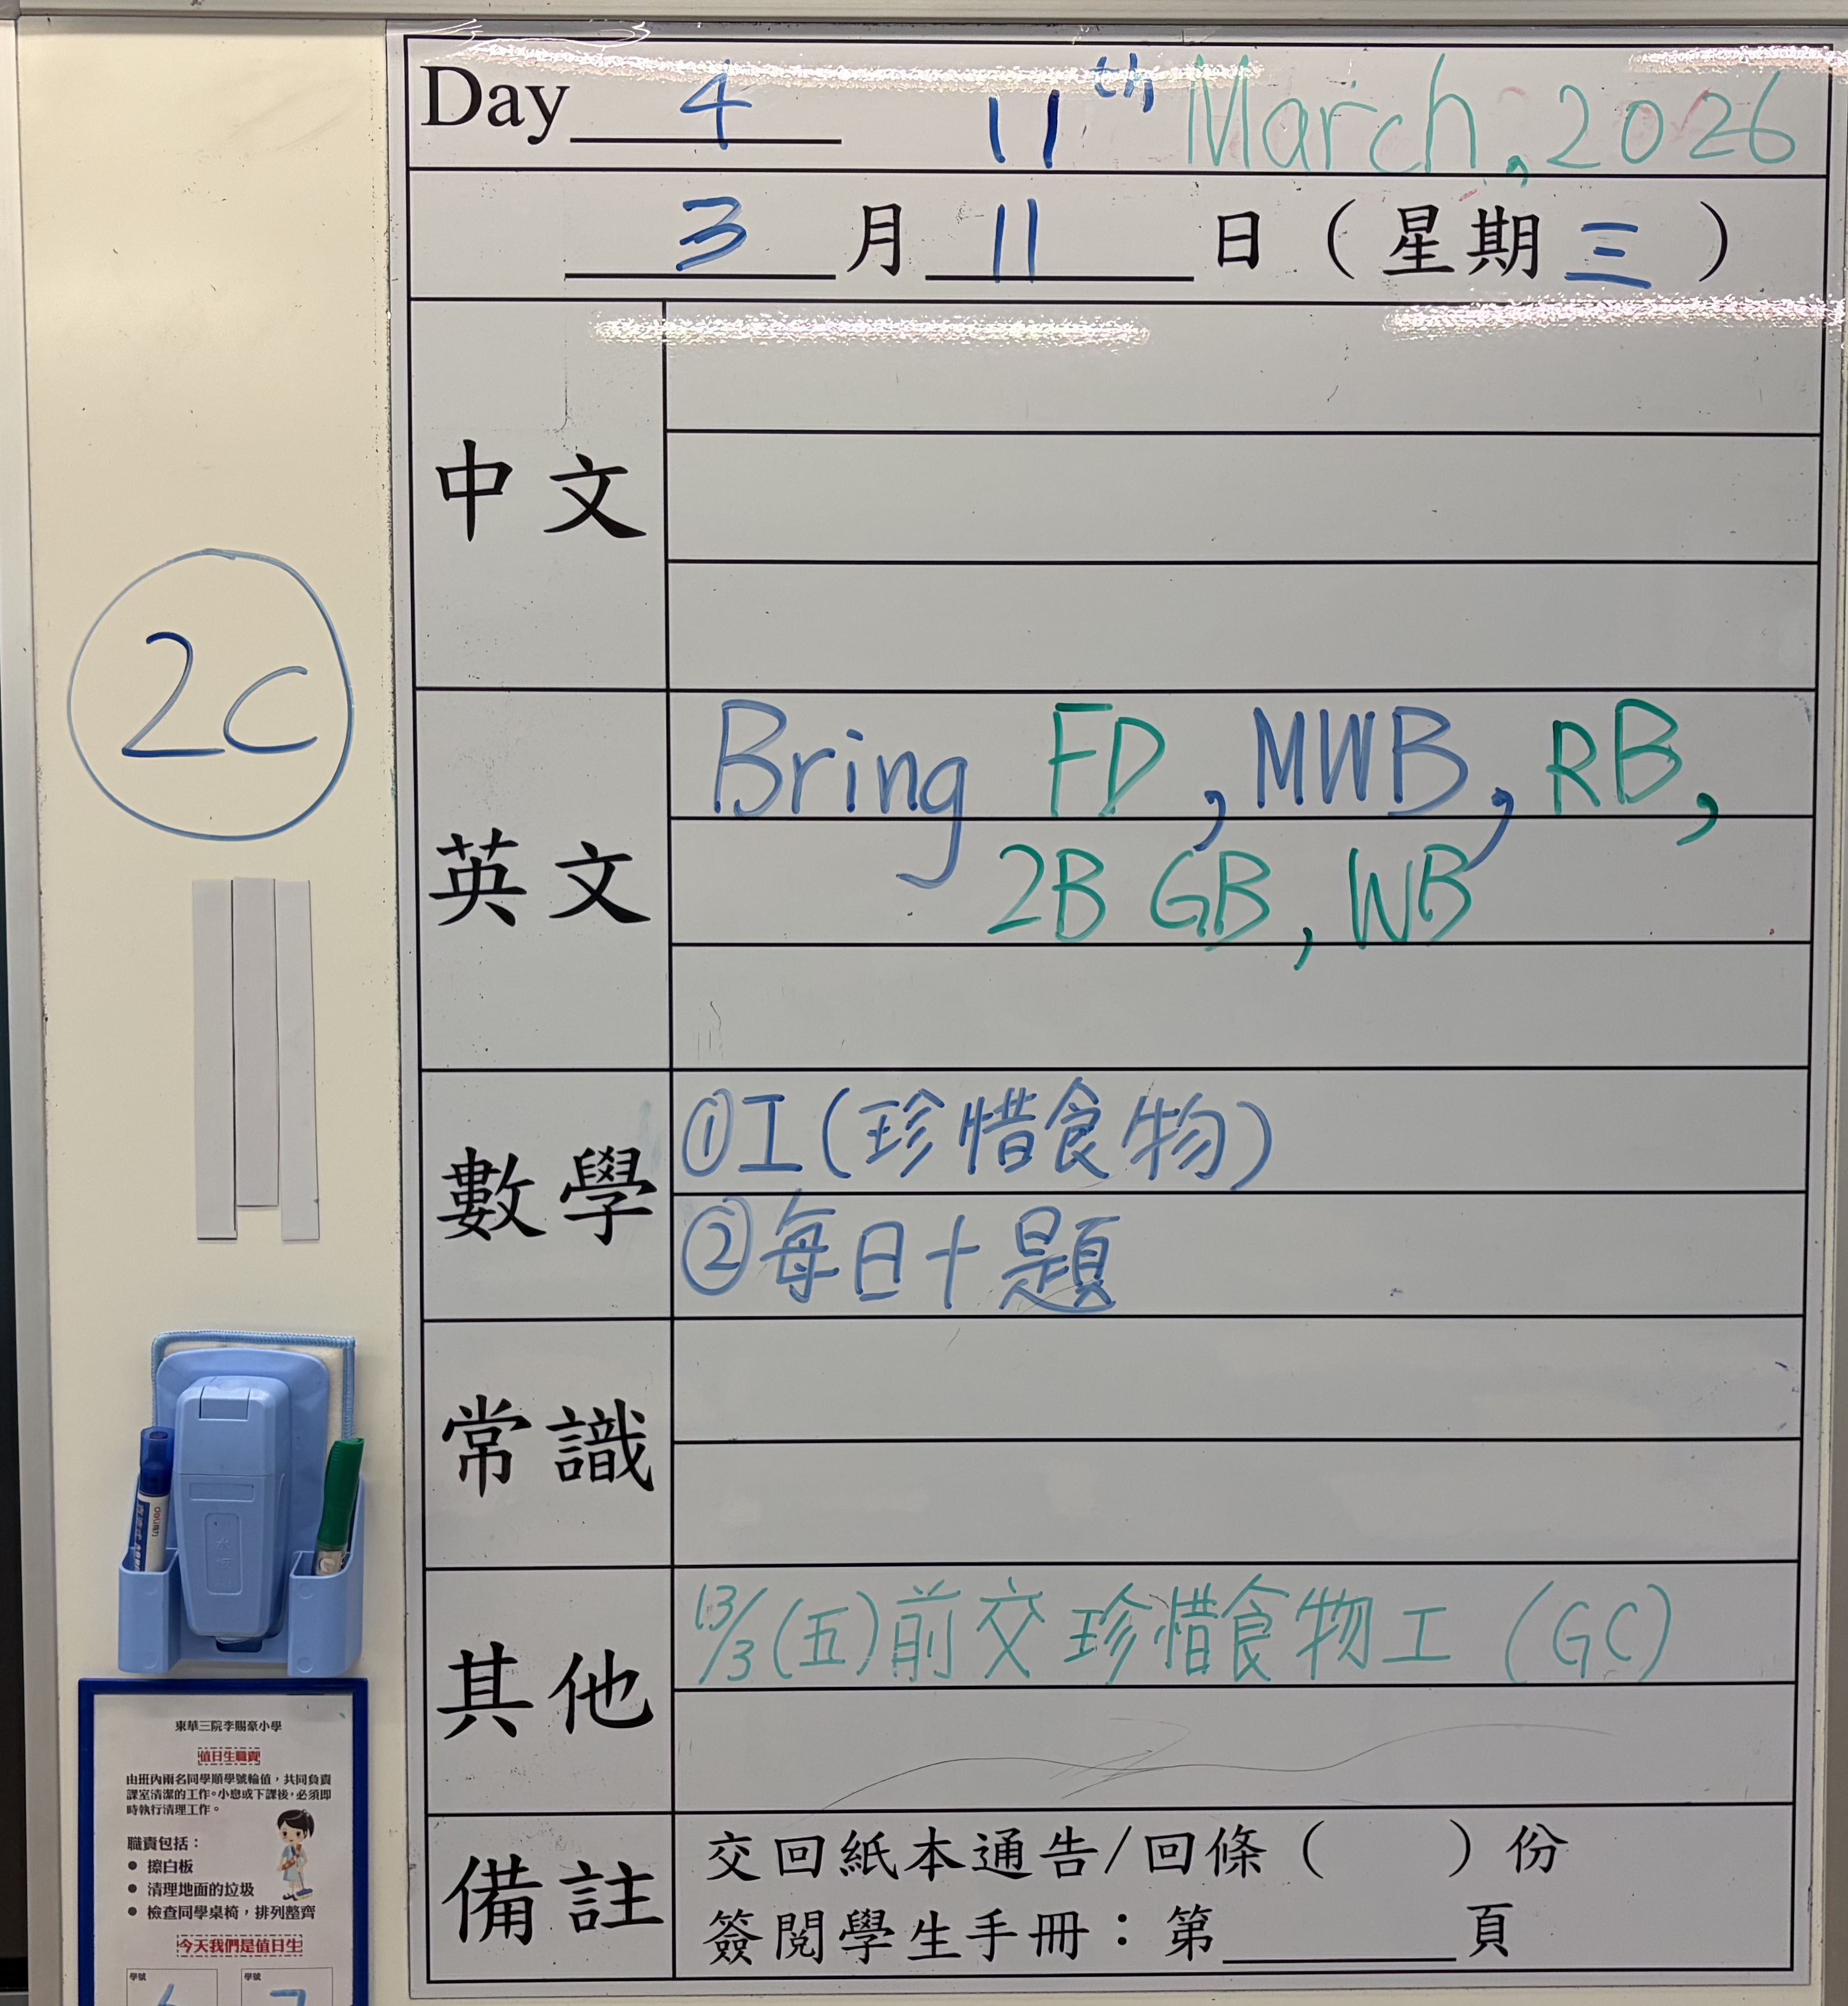 Day 4 11th March, 2026
3 月 11 日 (星期三)
中文
2C
英文
Bring FD, MWB, RB,
2B GB, WB
數學
①工(珍惜食物)
②每日十題
常識
其他
13/3(五)前交珍惜食物工 (GC)
備註
交回紙本通告/回條( )份
簽閱學生手冊：第____頁
東華三院李賜豪小學
值日生職責
由班內兩名同學順學號輪值，共同負責
課室清潔的工作。小息或下課後，必須即
時執行清理工作。
職責包括：
● 擦白板
● 清理地面的垃圾
● 檢查同學桌椅，排列整齊
今天我們是值日生
學號 學號